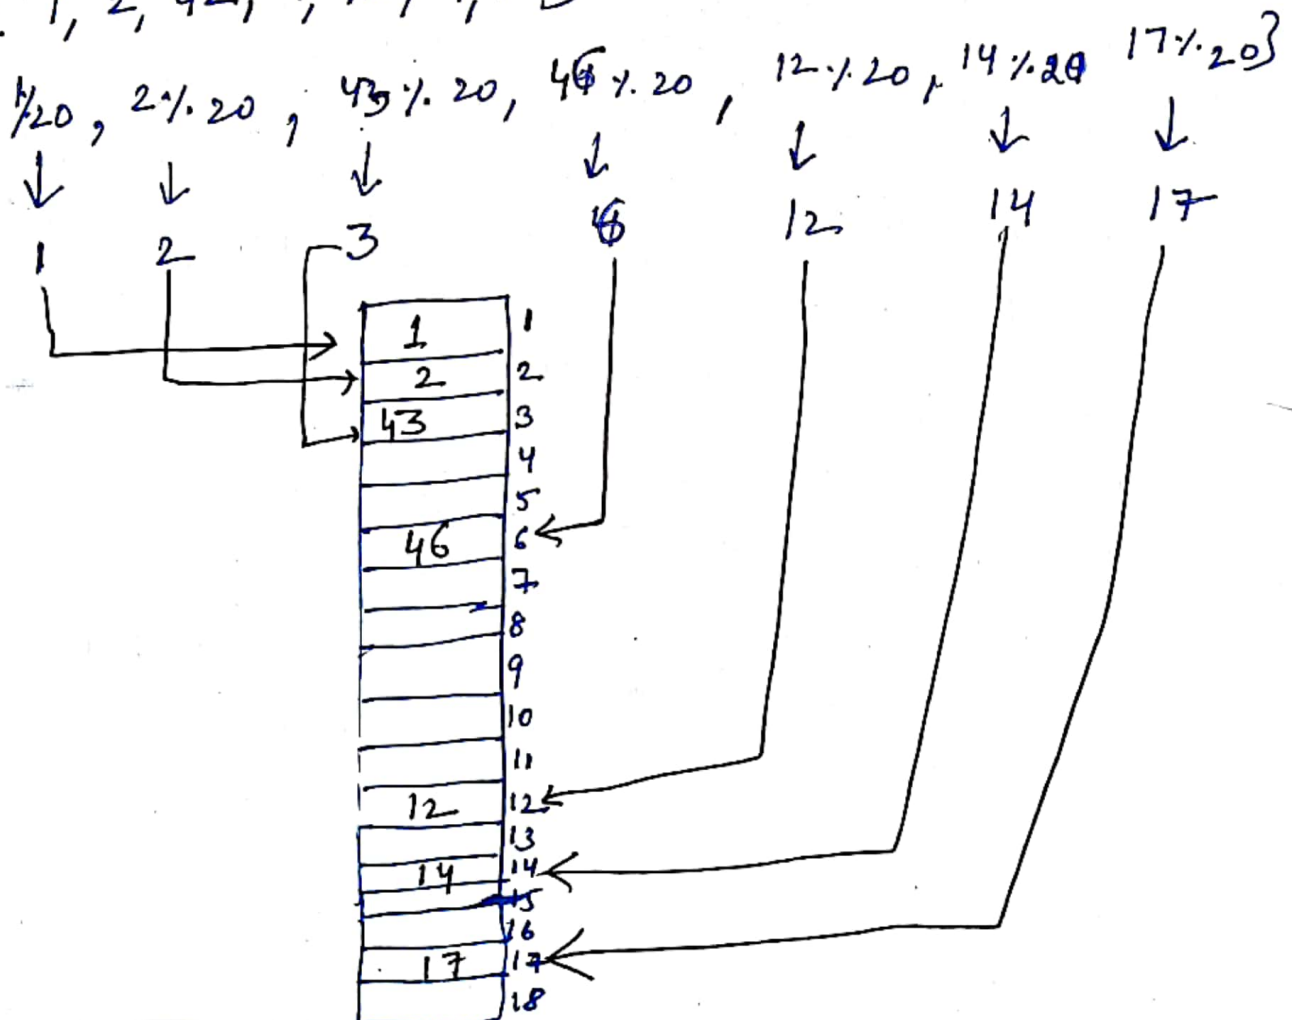 1%20, 2%20, 43%20, 46%20, 12%20, 14%20 17%20}
1 2 3 6 12 14 17
1 1
2 2
43 3
4
5
46 6
7
8
9
10
11
12 12
13
14 14
15
16
17 17
18